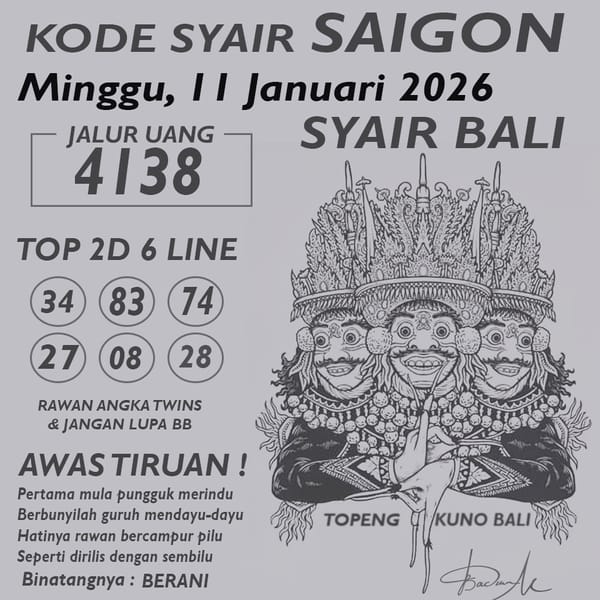 KODE SYAIR SAIGON
Minggu, 11 Januari 2026
SYAIR BALI
JALUR UANG
4138
TOP 2D 6 LINE
34 83 74
27 08 28
RAWAN ANGKA TWINS
& JANGAN LUPA BB
AWAS TIRUAN !
Pertama mula pungguk merindu
Berbunyilah guruh mendayu-dayu
Hatinya rawan bercampur pilu
Seperti dirilis dengan sembilu
Binatangnya : BERANI
TOPENG KUNO BALI